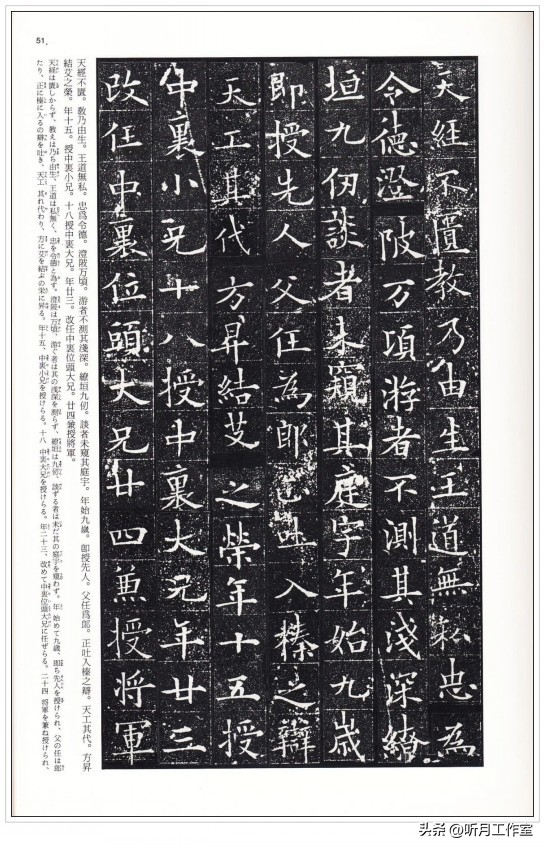 51.
天經不匱教乃由生王道無私忠為
令德澄陂万頃游者不測其淺深繚
垣九仞談者未窺其庭宇年始九歲
即授先人父任為郎正吐入榛之辯
天工其代方昇結艾之榮年十五授
中裏小兄十八授中裏大兄年廿三
改任中裏位頭大兄廿四兼授將軍
天經不匱。教乃由生。王道無私。忠爲令德。澄陂万頃。游者不測其淺深。繚垣九仞。談者未窺其庭宇。年始九歲。卽授先人。父任爲郎。正吐入榛之辯。天工其代。方昇
結艾之榮。年十五。授中裏小兄。十八授中裏大兄。年廿三。改任中裏位頭大兄。廿四兼授將軍。
天經は匱しからず、教えは乃ち由生、王道は私無く、忠を令德と為す。澄陂は万頃、游ぐ者は其の浅深を測らず、繚垣は九仞、談ずる者は未だ其の庭宇を窺わず。年 始めて九歲、即ち先人を授けられ、父の任は郎
たり。正に榛に入るの辯を吐き、天工 其れ代わり、方に艾を結ぶの栄に昇る。年十五、中裏小兄を授けらる。十八 中裏大兄を授けらる。年二十三、改めて中裏位頭大兄に任ぜらる。二十四 将軍を兼ね授けられ、
头条 @听月工作室